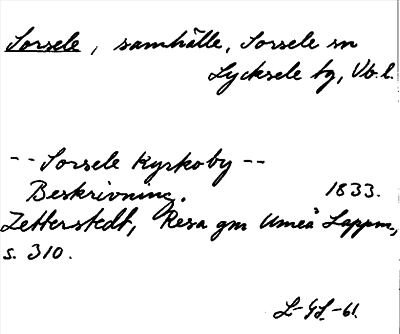 Sorsele, samhälle, Sorsele sn
Lycksele tg, Vb. l.
-- Sorsele Kyrkoby --
Beskrivning. 1833.
Zetterstedt, Resa gm Umeå Lappm,
s. 310.
L-GL-61.